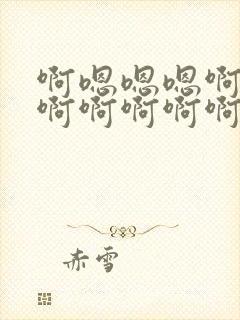 啊嗯嗯嗯啊
啊啊啊啊啊
赤雪